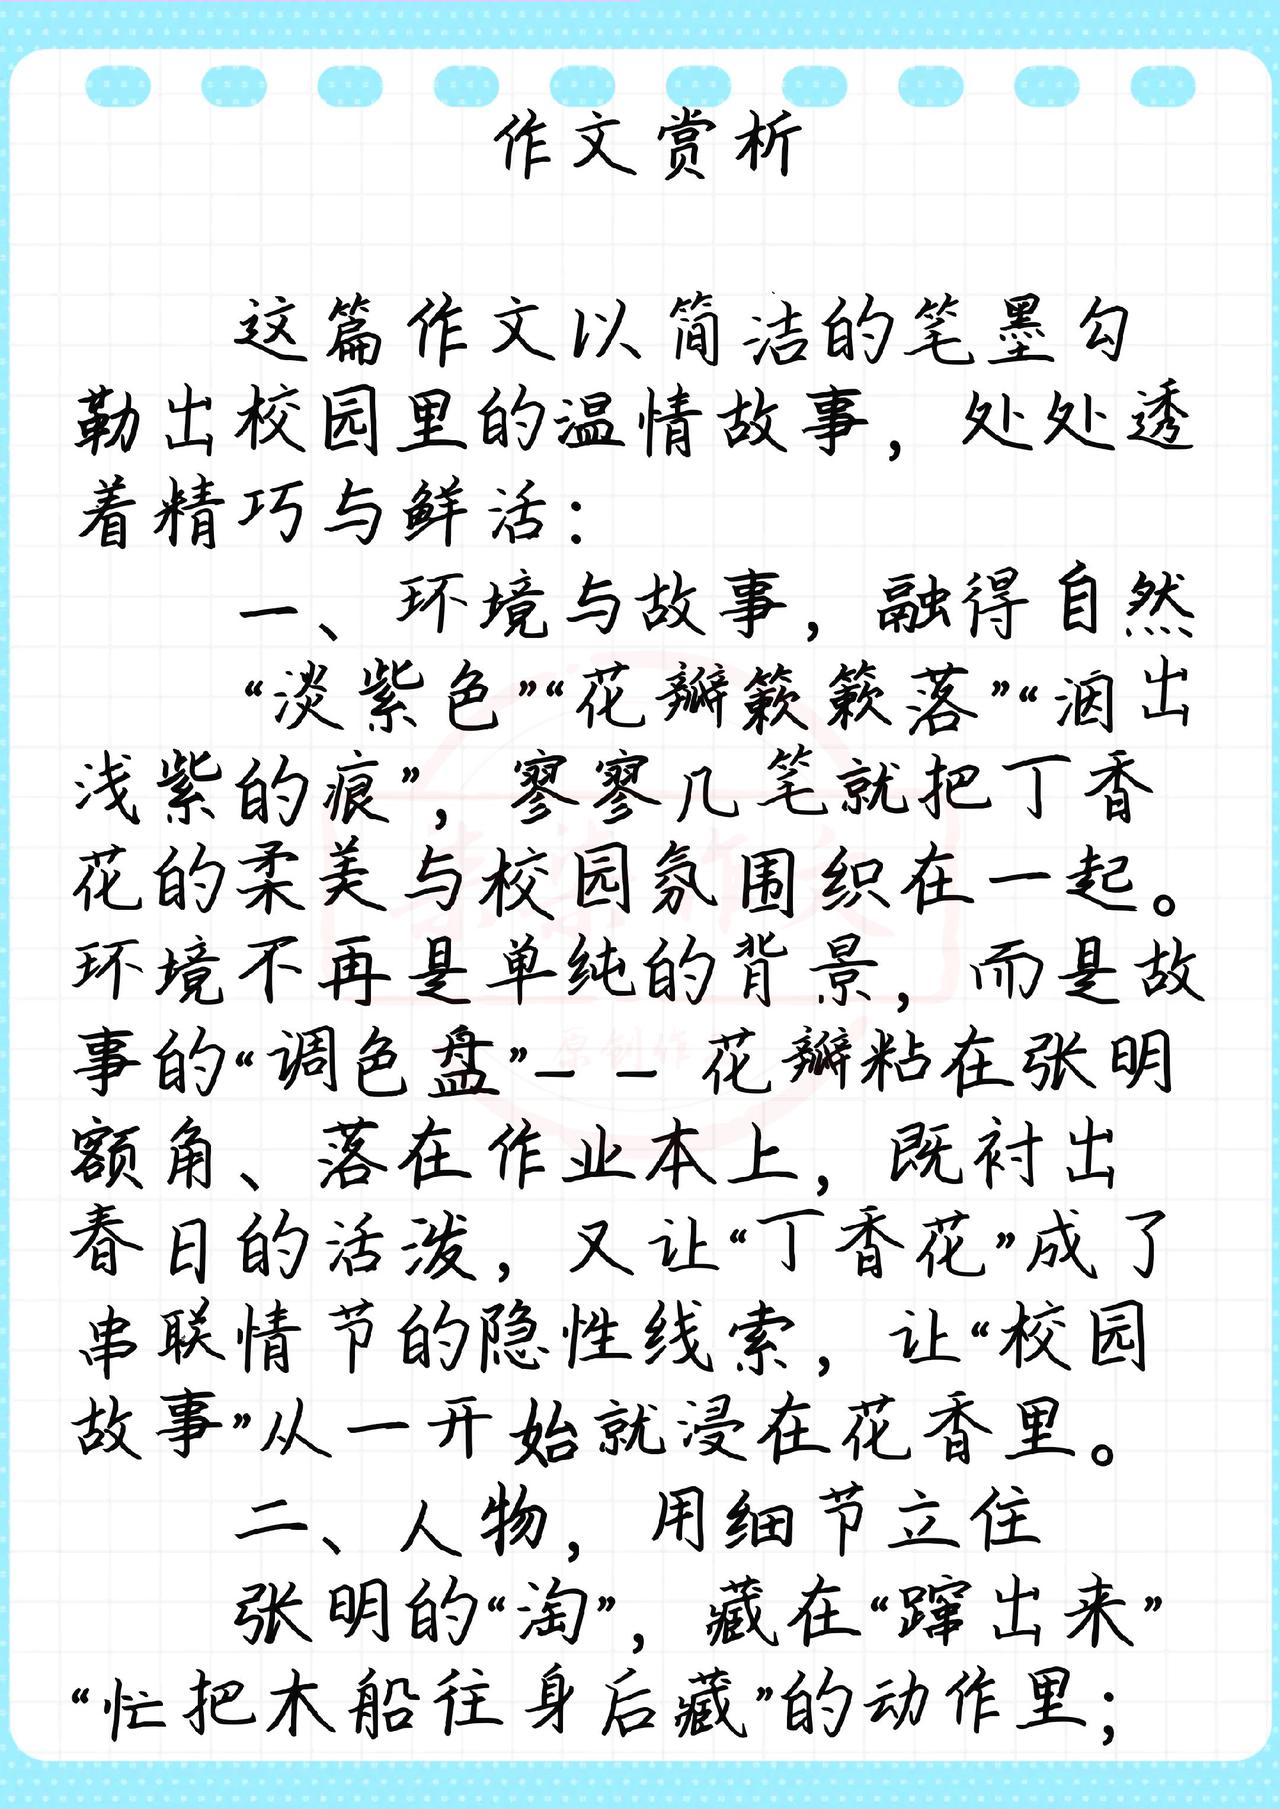 作文赏析
这篇作文以简洁的笔墨勾
勒出校园里的温情故事，处处透
着精巧与鲜活：
一、环境与故事，融得自然
“淡紫色”“花瓣簌簌落”“洇出
浅紫的痕”，寥寥几笔就把丁香
花的柔美与校园氛围织在一起。
环境不再是单纯的背景，而是故
事的“调色盘”——花瓣粘在张明
额角、落在作业本上，既衬出
春日的活泼，又让“丁香花”成了
串联情节的隐性线索，让“校园
故事”从一开始就浸在花香里。
二、人物，用细节立住
张明的“淘”，藏在“蹿出来”
“忙把木船往身后藏”的动作里；